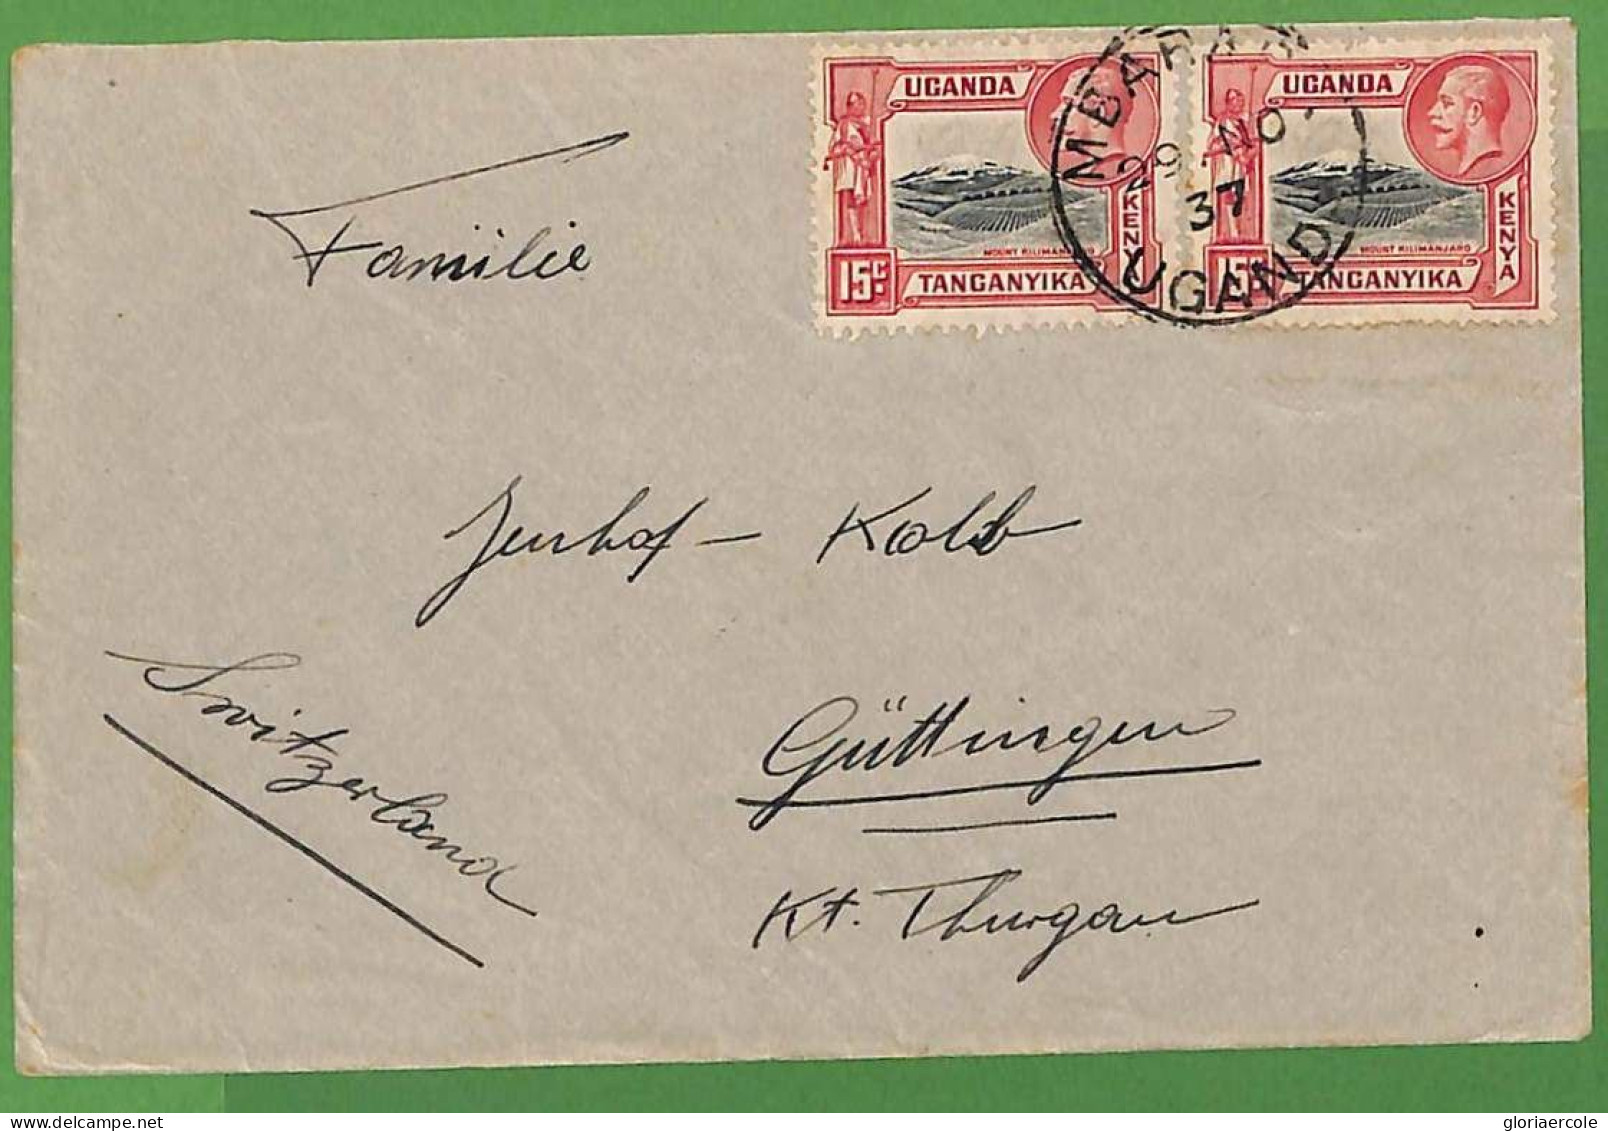 UGANDA
KENYA
MOUNT KILIMANJARO
15c TANGANYIKA
UGANDA
KENYA
MOUNT KILIMANJARO
15c TANGANYIKA
29 NO
37
UGANDA
Familie
Kolb
Switzerland
Güttingen
Kt. Thurgau
gloriaercole